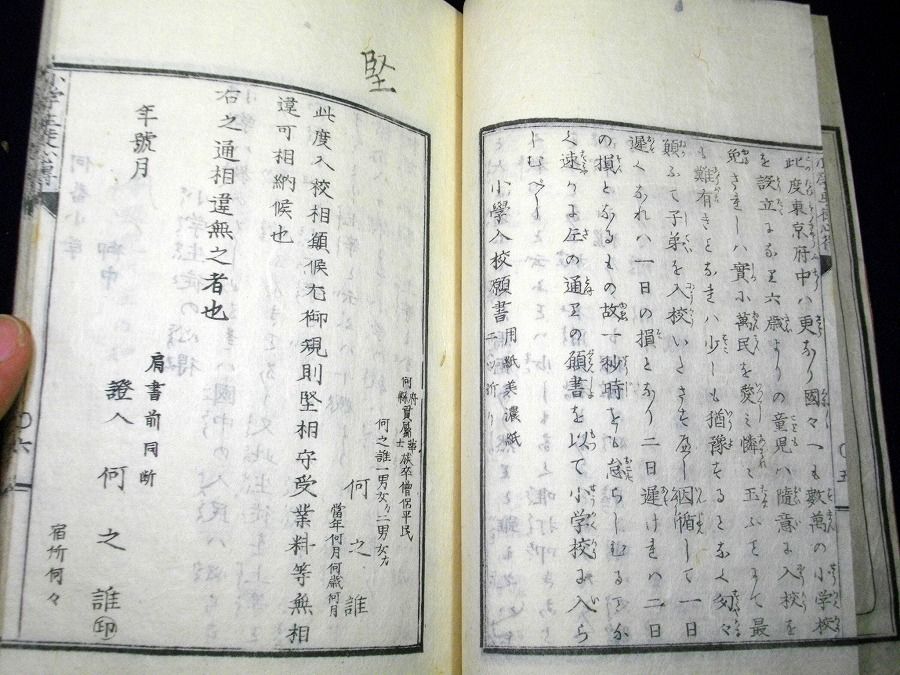 此度東京府中ハ更なり國々へも數萬の小学校
を設立になり六歳よりの童児ハ随意に入校を
免さましハ實に萬民を愛し憐ミ玉ふをもて最
も難有きとなまハ少しも猶豫をることなく夕々
願ふて子弟を入校いたさも座し因循して一日
遲くなれハ一日の損となり二日遲けまハ二日
の損となるもの故一秒時をも怠らしむる
く速かに左の通りの願書を以て小学校に入ら
しむべし
小學入校願書 用紙美濃紙
二ツ折り
何府縣貫屬華士族卒僧侶平民
何之誰一男女カ二男女カ
何之誰
當年何月何歳何月
此度入校相願候尤御規則堅相守受業料等無相
違可相納候也
右之通相違無之者也
年號月
肩書前同断
證人何之誰㊞
宿所何々
堅